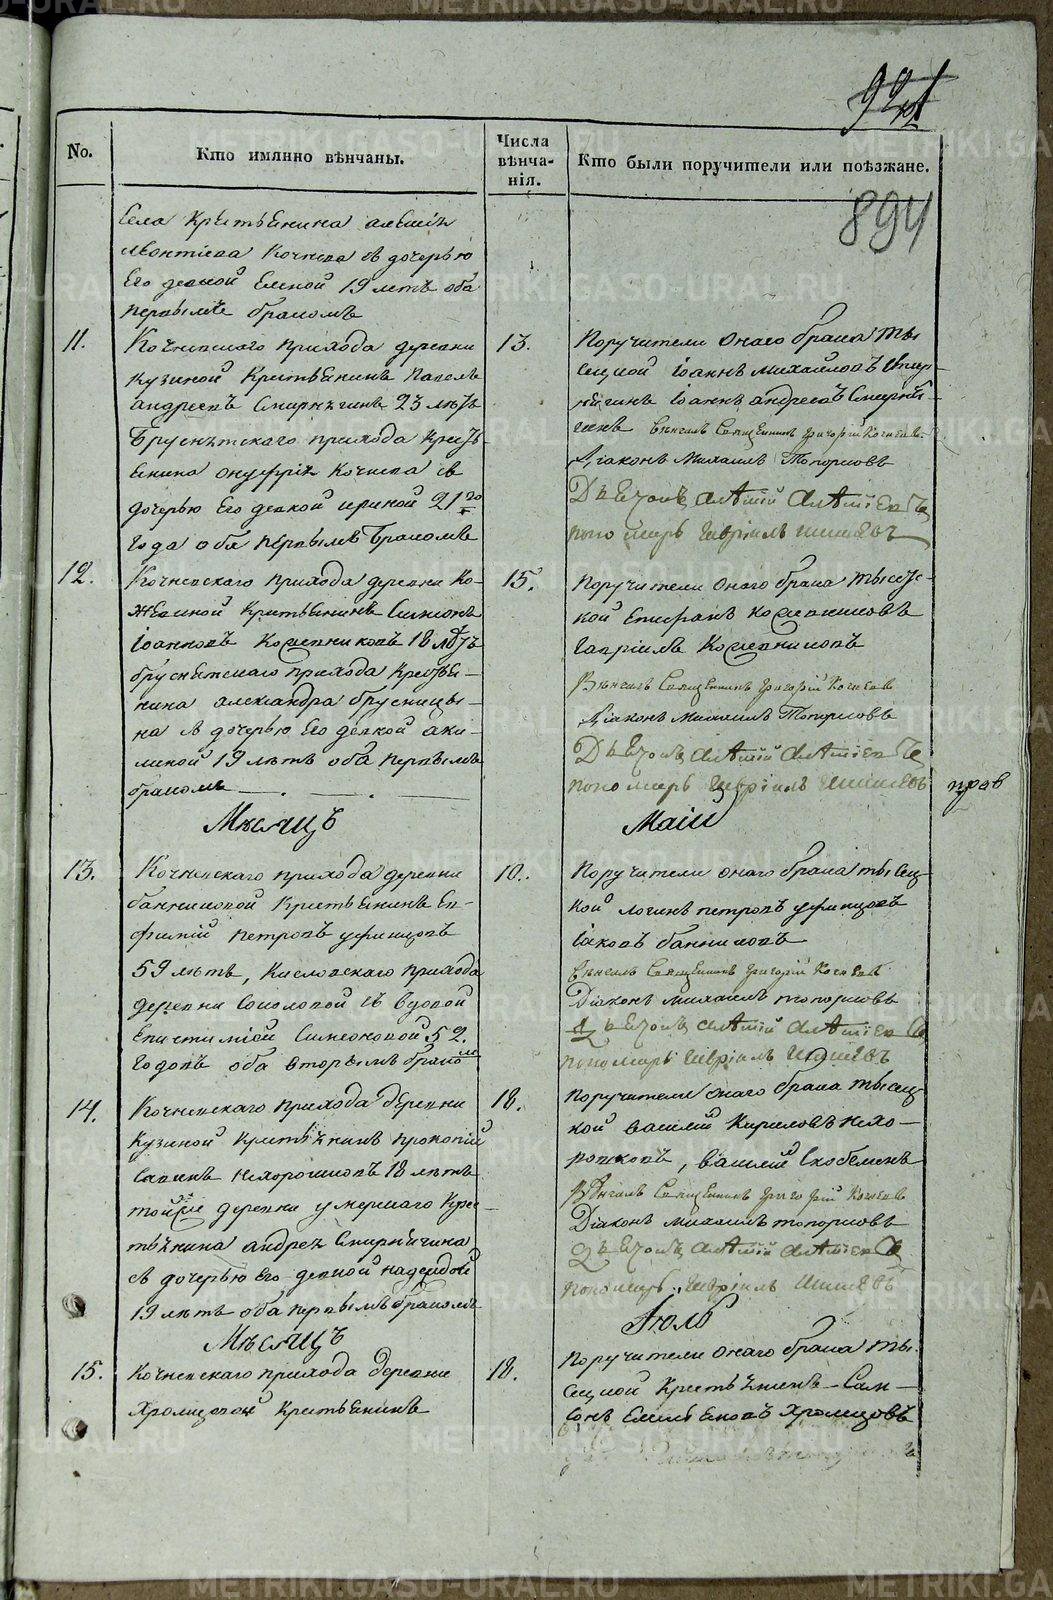 924
894
No.
Кто имянно вѣнчаны.
Числа вѣнча-нія.
Кто были поручители или поѣзжане.
села крестьянина алексія
леонтіева Кочнева съ дочерью
Его девкой Еленой 19 летъ оба
первымъ бракомъ
11.
Кочневскаго прихода деревни
кузиной Крестьянинъ павелъ
андреевъ Смирнягинъ 23 летъ
Бруснятскаго прихода крестья
янина онуфрія Кочнева съ
дочерью Его девкой ириной 21го
года оба первымъ бракомъ
13.
Поручители онаго брака ты
сецкой Іоаннъ михайловъ Смир
нягинъ Іоаннъ андреевъ Смирня
гинъ Венчалъ Священникъ Григорій Кочневъ
Діаконъ Михаилъ Топорковъ
Дьячокъ
пономарь Гавріилъ
12.
Кочневскаго прихода деревни Ко-
жевиной Крестьянинъ Симеонъ
Іоанновъ Кожевниковъ 18 летъ
бруснятскаго прихода Крестья-
нина александра брусницы-
на съ дочерью Его девкой аки-
линой 19 летъ оба первымъ
бракомъ
15.
Поручители онаго брака тысец-
кой Епифанъ Кожевниковъ
Гавріилъ Кожевниковъ
Вѣнчалъ Священникъ Григорій Кочневъ
Діаконъ Михаилъ Топорковъ
Дьячокъ
пономарь Гавріилъ
прав
Мѣсяцъ
Маіи
13.
Кочневскаго прихода деревни
банниковой Крестьянинъ Ев-
фимій петровъ уфинцовъ
59 летъ, Кисловскаго прихода
деревни Соколовой съ вдовой
Епистиміей Симеоновой 52.
годовъ оба вторымъ бракомъ
10.
Поручители онаго брака тысец-
кой логинъ петровъ уфинцовъ
Іаковъ банниковъ
Венчалъ Священникъ Григорій Кочневъ
Діаконъ Михаилъ топорковъ
Дьячокъ
пономарь Гавріилъ
14.
Кочневскаго прихода деревни
Кузиной Крестьянинъ прокопій
Савинъ Нехорошковъ 18 летъ
той же деревни умершаго Крес
тьянина андрея Смирнягина
съ дочерью Его девкой надеждой
19 летъ оба первымъ бракомъ
18.
Поручители онаго брака тысец
кой василій Кириловъ Нехо-
рошковъ, василій Скобелкинъ
Вѣнчалъ Священникъ Григорій Кочневъ
Діаконъ Михаилъ топорковъ
Дьячокъ
пономарь Гавріилъ
Мѣсяцъ
Іюль
15.
Кочневскаго прихода деревни
Хромцовой Крестьянинъ
18.
Поручители онаго брака ты
сецкой Крестьянинъ Сам-
сонъ Емельяновъ Хромцовъ